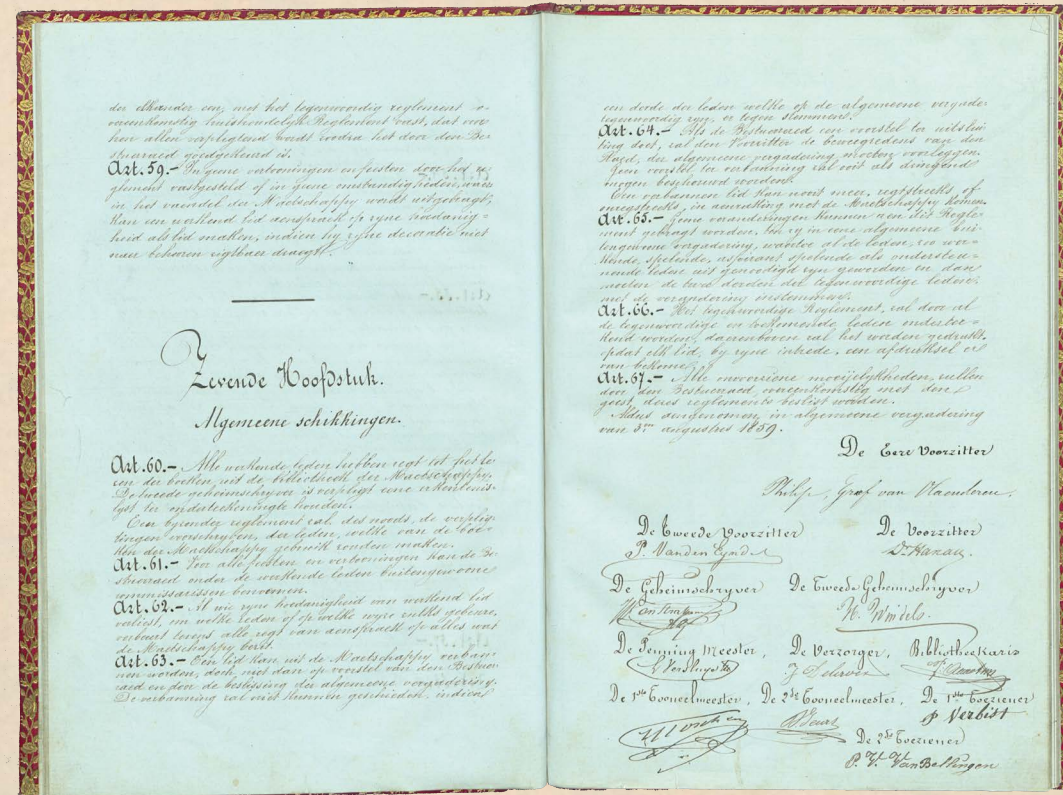 der elkander een, met het tegenwoordig reglement o-
vereenkomstig huishoudelyk Reglement vast, dat voor
hen allen verpligtend wordt zoodra het door den Be-
stuurraed goedgekeurd is.
Art. 59.- In geene vertooningen en feesten door het re-
glement vastgesteld of in geene omstandigheden, waer
in het vaendel der Maetschappy wordt uitgebragt,
kan een werkend lid aenspraek op zyne hoedanig-
heid als lid maken, indien hy zyne decoratie niet
naer behooren zigtbaer draegt.
Zevende Hoofdstuk.
Algemeene schikkingen.
Art. 60.- Alle werkende leden hebben regt tot het le-
zen der boeken, uit de bibliotheek der Maetschappy.
De tweede geheimschryver is verpligt eene erkentenis-
lyst ter onderteekening te houden.
Een byzonder reglement zal, des noods, de verplig-
tingen voorschryven, der leden, welke van de boe-
ken der Maetschappy gebruik zouden maken.
Art. 61.- Voor alle feesten en vertooningen kan de Be-
stuurraed onder de werkende leden buitengewoone
commissarissen benoemen.
Art. 62.- Al wie zyne hoedanigheid van werkend lid
verliest, om welke reden of op welke wyze zulks gebeure,
verbeurt tevens alle regt van aenspraek op alles wat
de Maetschappy bezit.
Art. 63.- Een lid kan uit de Maetschappy verban-
nen worden, doch niet dan op voorstel van den Bestuur-
raed en door de beslissing der algemeene vergadering.
De verbanning zal niet kunnen geschieden, indien
een derde der leden welke op de algemeene vergade-
ring tegenwoordig zyn, er tegen stemmen.
Art. 64.- Als de Bestuurraed een voorstel tot uitslui-
ting doet, zal den Voorzitter de beweegredens van den
Raed, der algemeene vergadering moeten voorleggen.
Geen voorstel ter verbanning zal ooit als dringend
mogen beschouwd worden.
Een verbannen lid kan nooit meer, regtstreeks of
onregtstreeks, in aenraking met de Maetschappy komen.
Art. 65.- Geene veranderingen kunnen aen dit Regle-
ment gebragt worden, ten zy in eene algemeene bui-
tengewone vergadering, waertoe al de leden, zoo wer-
kende, spelende, aspirant spelende als ondersteu-
nende leden uit genoodigd zyn geworden en dan
moeten de twee derden der tegenwoordige leden,
met de vergadering instemmen.
Art. 66.- Het tegenwoordige Reglement, zal door al
de tegenwoordige en toekomende leden onderteo-
kend worden, daerenboven zal het worden gedrukt,
opdat elk lid, by zyne intrede, een afdruksel er
van bekome.
Art. 67.- Alle onvoorziene moeijelykheden, zullen
door den Bestuurraed, overeenkomstig met den
geest, dezes reglements beslist worden.
Aldus aengenomen, in algemeene vergadering
van 3en augustus 1859.
De Eere Voorzitter
Philip, Graf van Vlaenderen.
De Tweede Voorzitter
De Voorzitter
P. Vanden Eynde
De Geheimschryver
De Tweede Geheimschryver
De Penning Meester,
De Verzorger,
Bibliothekaris
De 1ste Tooneelmeester,
De 2de Tooneelmeester,
De 1ste Toeziener
Verbist
De 2de Toeziener
P. V. Van Bellingen